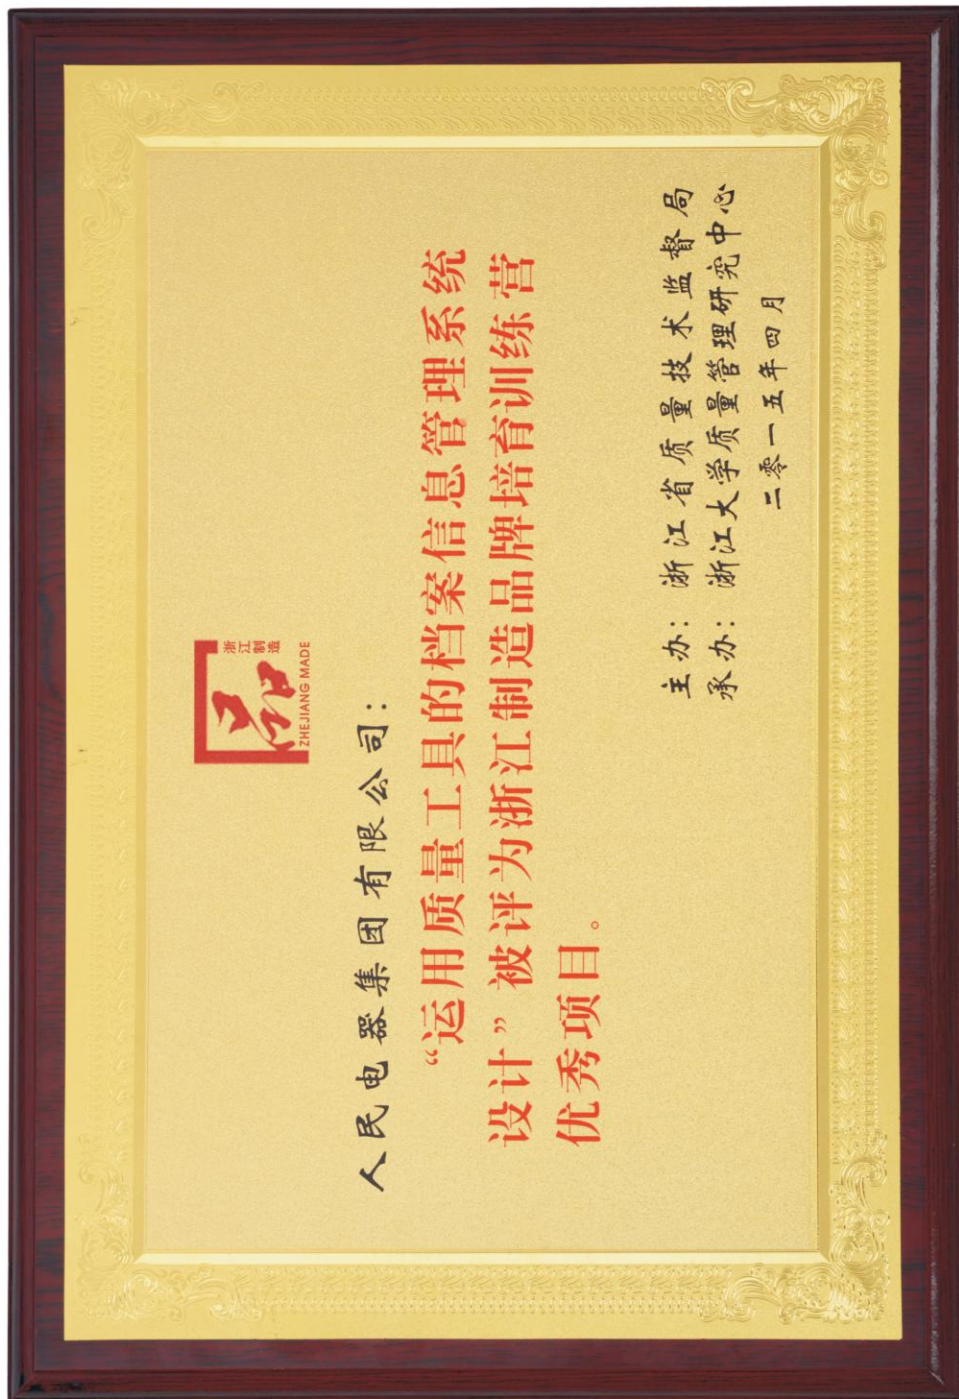 品
浙江制造
ZHEJIANG MADE
人民电器集团有限公司：
“运用质量工具的档案信息管理系统
设计”被评为浙江制造品牌培育训练营
优秀项目。
主办：浙江省质量技术监督局
承办：浙江大学质量管理研究中心
二零一五年四月